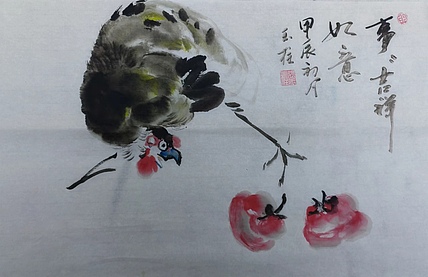 事事吉祥
如意
甲辰初夏
玉柱